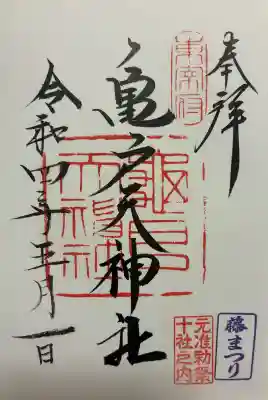 奉拝
東宰府
亀戸天神社
龜戸
天神社
令和四年五月一日
元准勅祭
十社之内
藤まつり